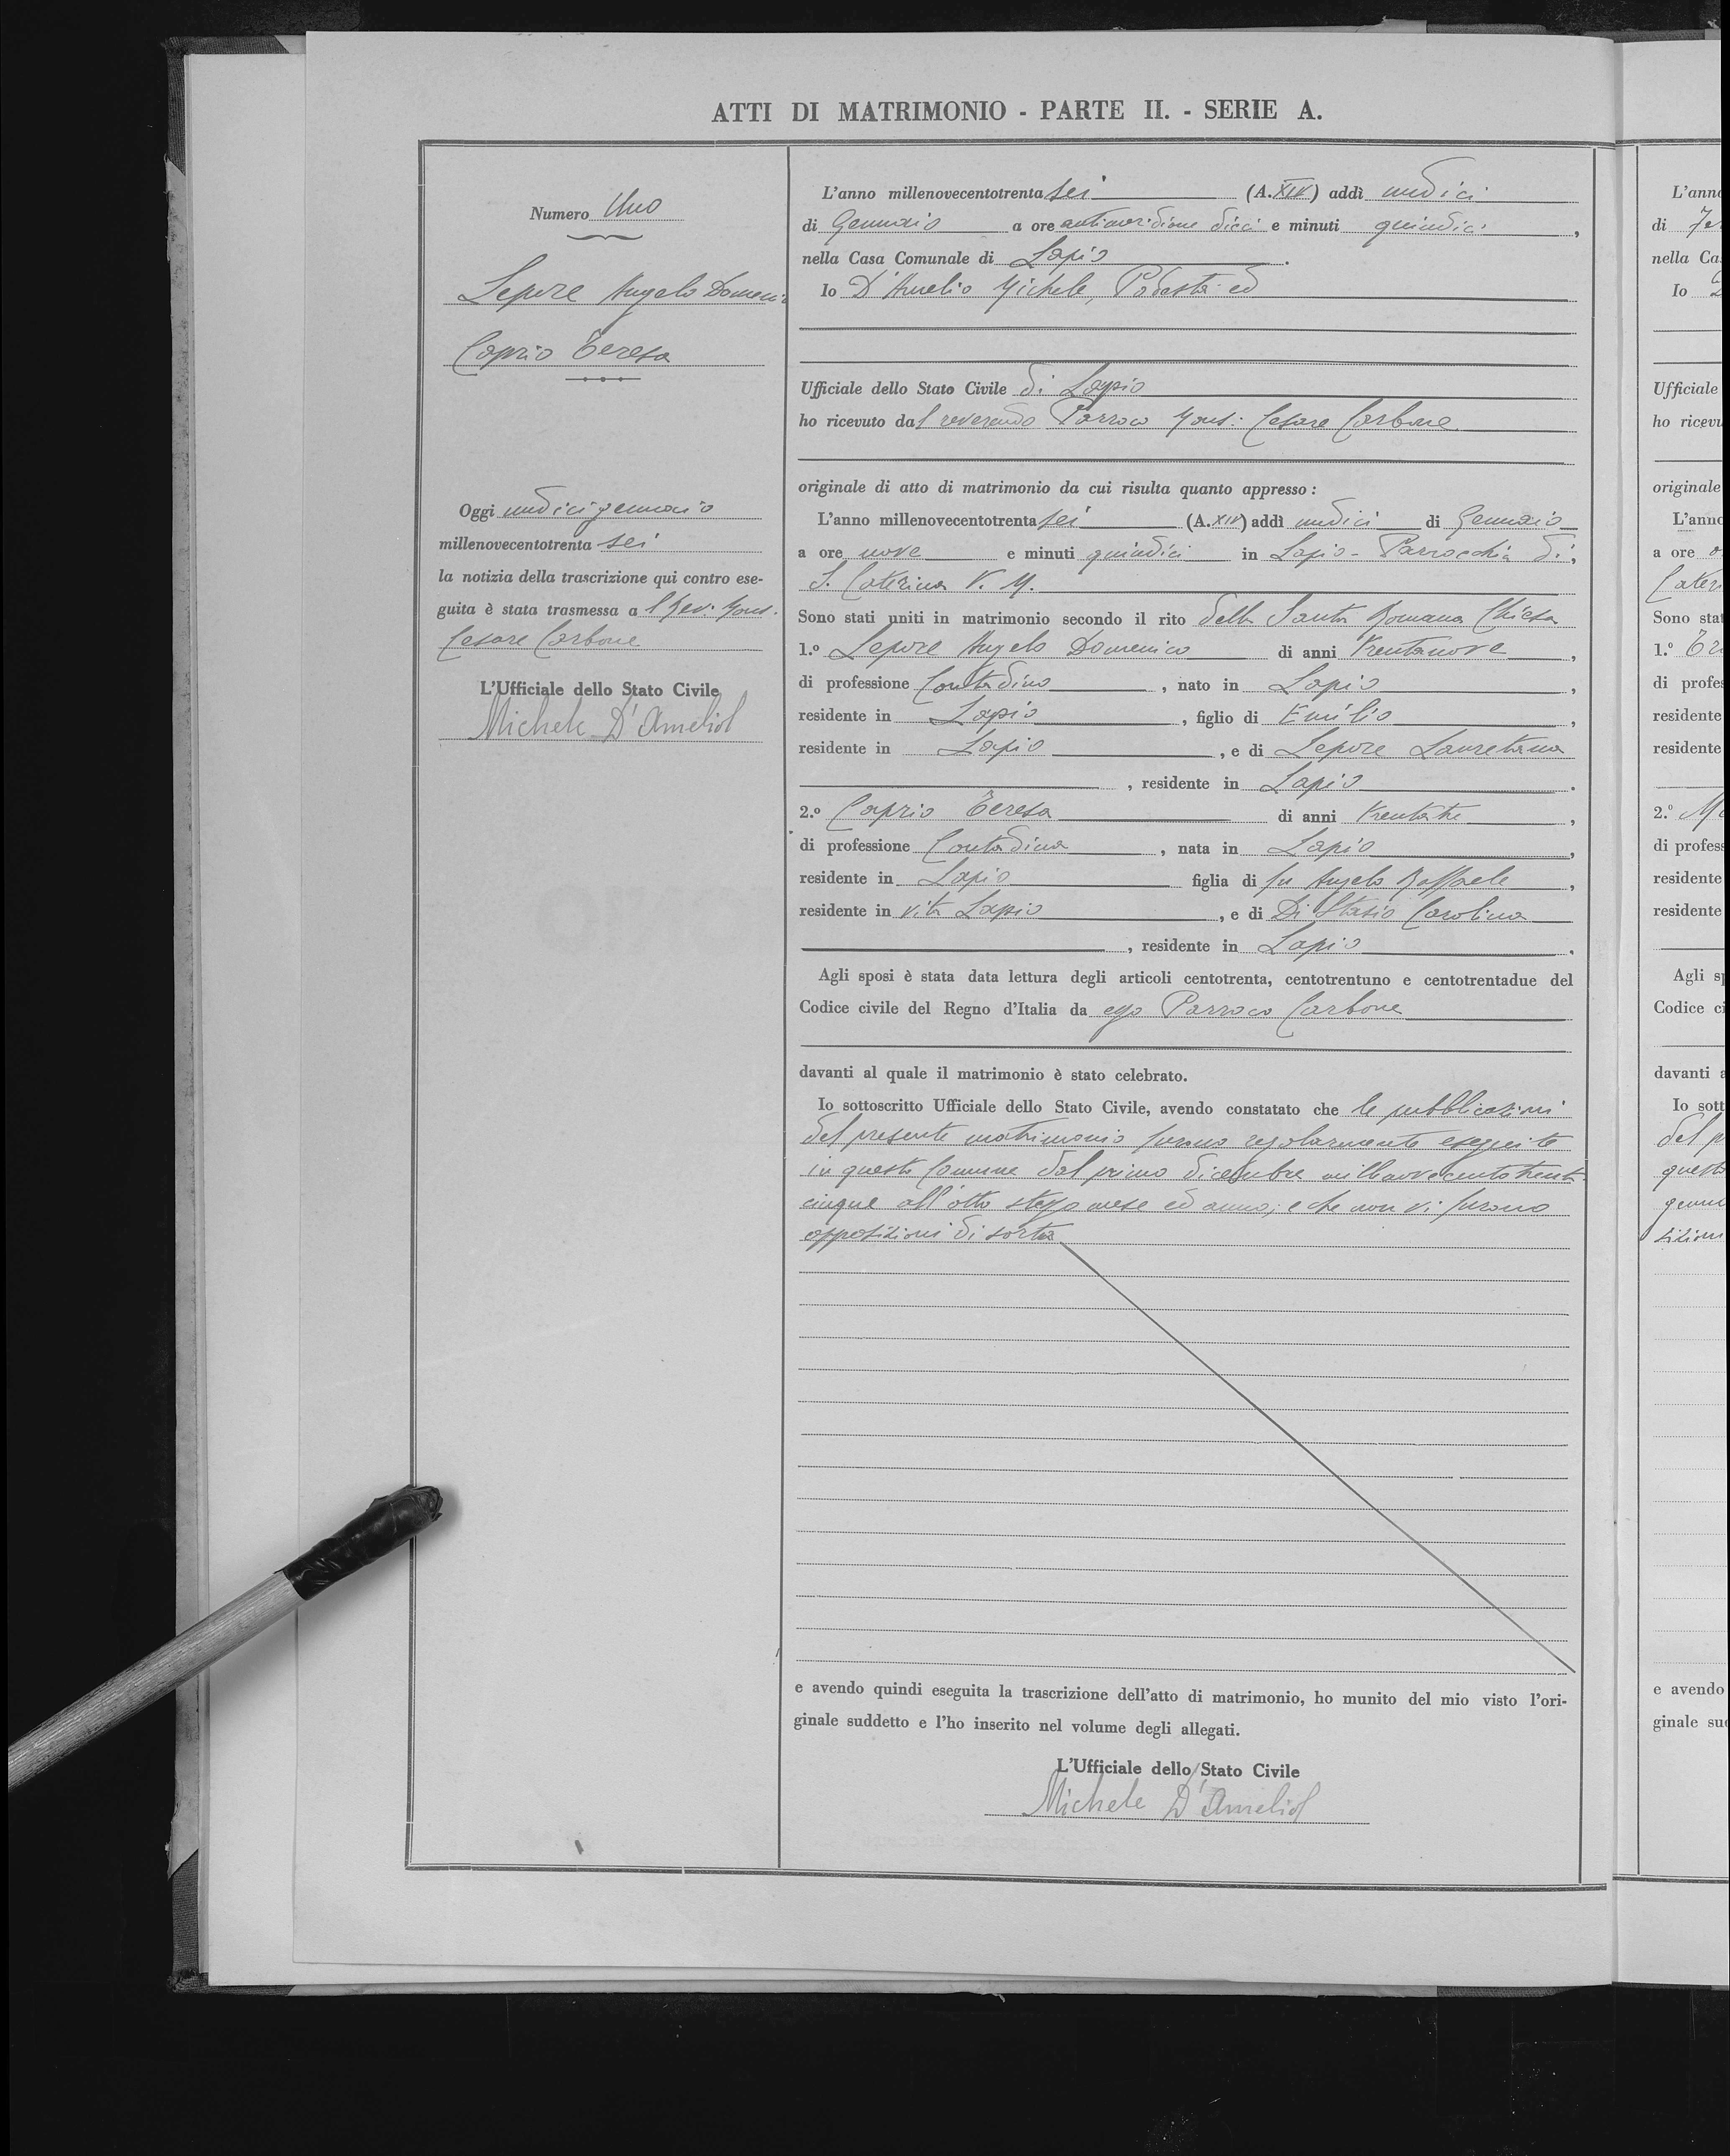 ATTI DI MATRIMONIO - PARTE II. - SERIE A.
Numero Uno
Lepore Angelo Domenico
Caprio Teresa
Oggi undici gennaio
millenovecentotrenta sei
la notizia della trascrizione qui contro ese-
guita è stata trasmessa a l Rev: Mons.
Cesare Carbone
L'Ufficiale dello Stato Civile
Michele D'Amelio
L'anno millenovecentotrenta sei (A. XIV) addì undici
di Gennaio a ore antimeridiane dieci e minuti quindici,
nella Casa Comunale di Lapio.
Io D'Amelio Michele, Podestà ed
Ufficiale dello Stato Civile di Lapio
ho ricevuto dal reverendo Parroco Mons: Cesare Carbone
originale di atto di matrimonio da cui risulta quanto appresso:
L'anno millenovecentotrenta sei (A. XIV) addì undici di Gennaio
a ore nove e minuti quindici in Lapio - Parrocchia di,
S. Caterina V. M.
Sono stati uniti in matrimonio secondo il rito della Santa Romana Chiesa
1.º Lepore Angelo Domenico di anni trentanove,
di professione Contadino, nato in Lapio,
residente in Lapio, figlio di Emilio,
residente in Lapio, e di Lepore Lauretana
, residente in Lapio.
2.º Caprio Teresa di anni trentatre,
di professione Contadina, nata in Lapio,
residente in Lapio figlia di fu Angelo Raffaele,
residente in vita Lapio, e di Di Stasio Carolina
, residente in Lapio.
Agli sposi è stata data lettura degli articoli centotrenta, centotrentuno e centotrentadue del
Codice civile del Regno d'Italia da esso Parroco Carbone
davanti al quale il matrimonio è stato celebrato.
Io sottoscritto Ufficiale dello Stato Civile, avendo constatato che le pubblicazioni
del presente matrimonio furono regolarmente eseguite
in questo Comune dal primo dicembre millenovecentotrenta
cinque all'otto stesso mese ed anno; e che non vi furono
opposizioni di sorta
e avendo quindi eseguita la trascrizione dell'atto di matrimonio, ho munito del mio visto l'ori-
ginale suddetto e l'ho inserito nel volume degli allegati.
L'Ufficiale dello Stato Civile
Michele D'Amelio
L'anno
di
nella Ca
Io
Ufficiale
ho ricevu
originale
L'anno
a ore
Cater
Sono stat
1.º
di profes
residente
residente
2.º
di profess
residente
residente
Agli sp
Codice ci
davanti a
Io sott
del p
quest
genna
sizioni
e avendo
ginale sud